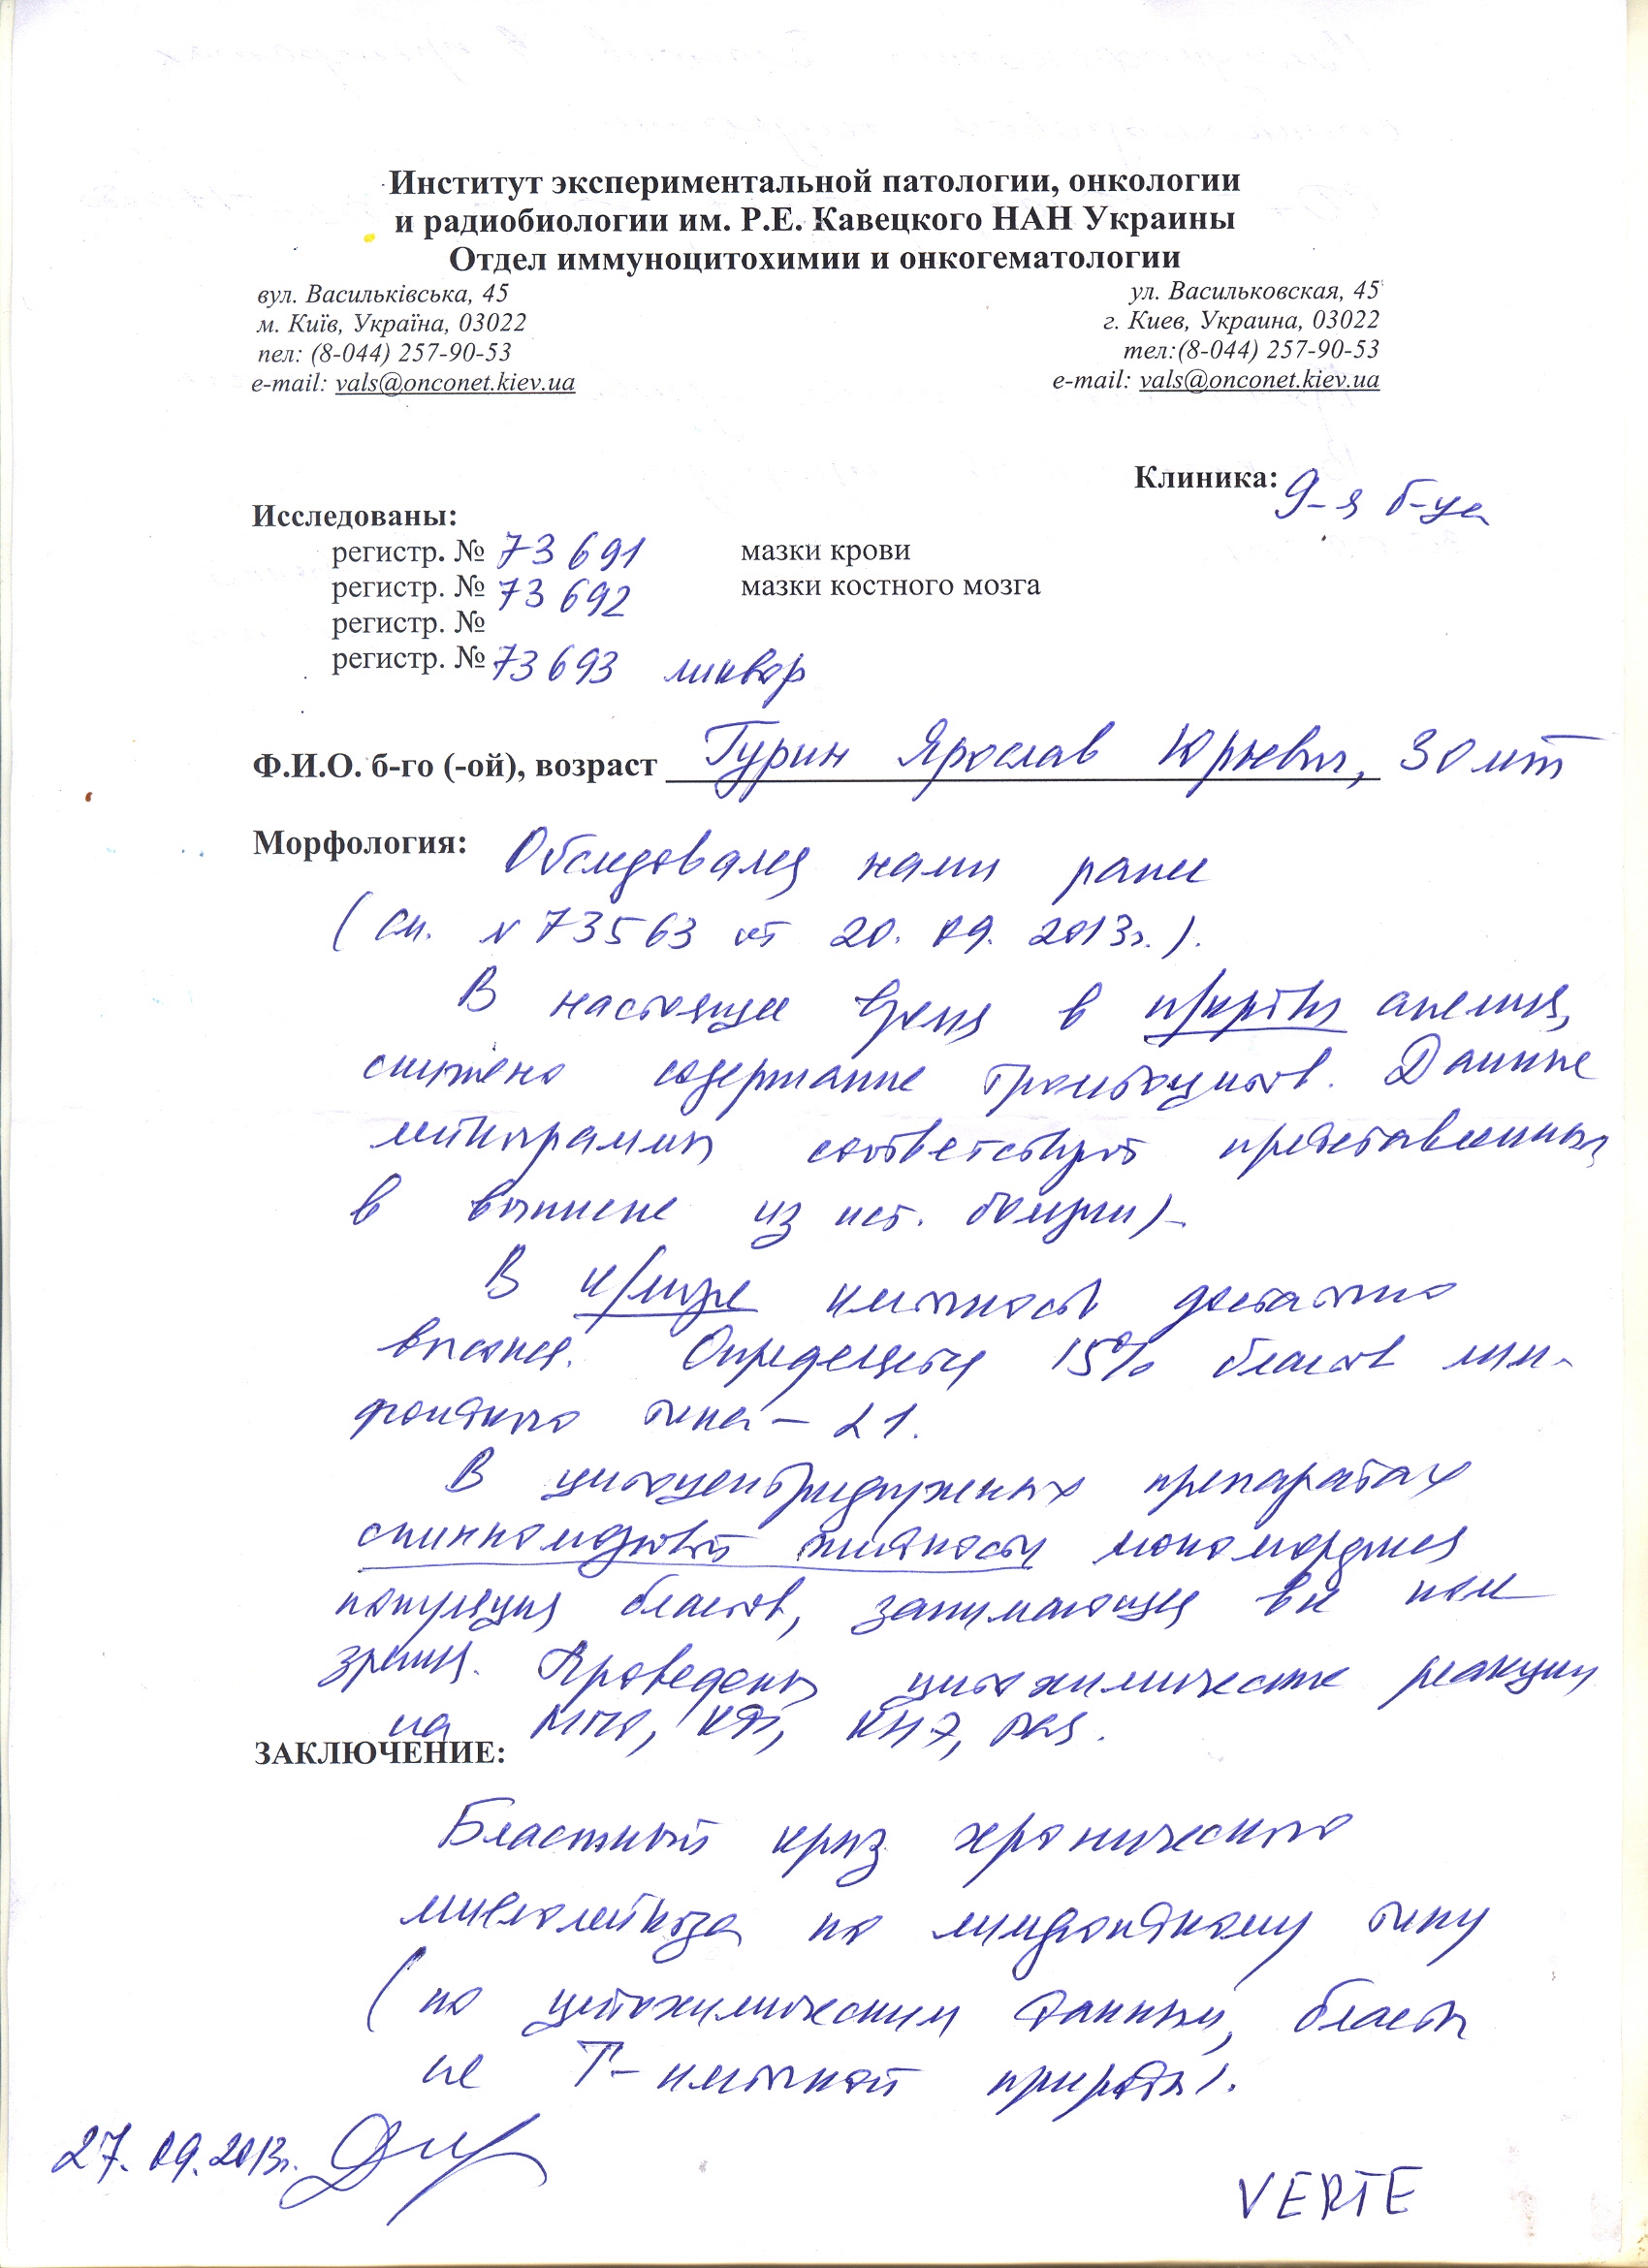 Институт экспериментальной патологии, онкологии
и радиобиологии им. Р.Е. Кавецкого НАН Украины
Отдел иммуноцитохимии и онкогематологии
вул. Васильківська, 45 ул. Васильковская, 45
м. Київ, Україна, 03022 г. Киев, Украина, 03022
пел: (8-044) 257-90-53 тел:(8-044) 257-90-53
e-mail: vals@onconet.kiev.ua e-mail: vals@onconet.kiev.ua
Клиника: 9-я б-ца
Исследованы:
регистр. № 73 691 мазки крови
регистр. № 73 692 мазки костного мозга
регистр. №
регистр. № 73 693 ликвор
Ф.И.О. б-го (-ой), возраст Гурин Ярослав Юрьевич, 30 лет
Морфология: Обследовался нами ранее
(см. № 73563 от 20. 09. 2013г.).
В настоящее время в п/крови анемия,
снижено содержание тромбоцитов. Данные
лейкограммы соответствуют представленным
в выписке из ист. болезни).
В к/мозге клеточность достаточно
высокая. Определяется 15% бластов лим-
фоидного типа – L1.
В цитоцентрифужных препаратах
спинномозговой жидкости мономорфная
популяция бластов, занимающая все поле
зрения. Проведены цитохимические реакции
на МПО, КФ, КНЭ,
ЗАКЛЮЧЕНИЕ:
Бластный криз хронического
миелолейкоза по лимфоидному типу
(по цитохимическим данным, бласты
не Т-клеточной природы).
27. 09. 2013г.
VERTE